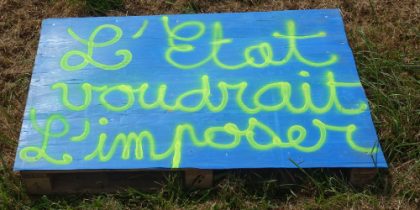 L'Etat
voudrait
L'imposer